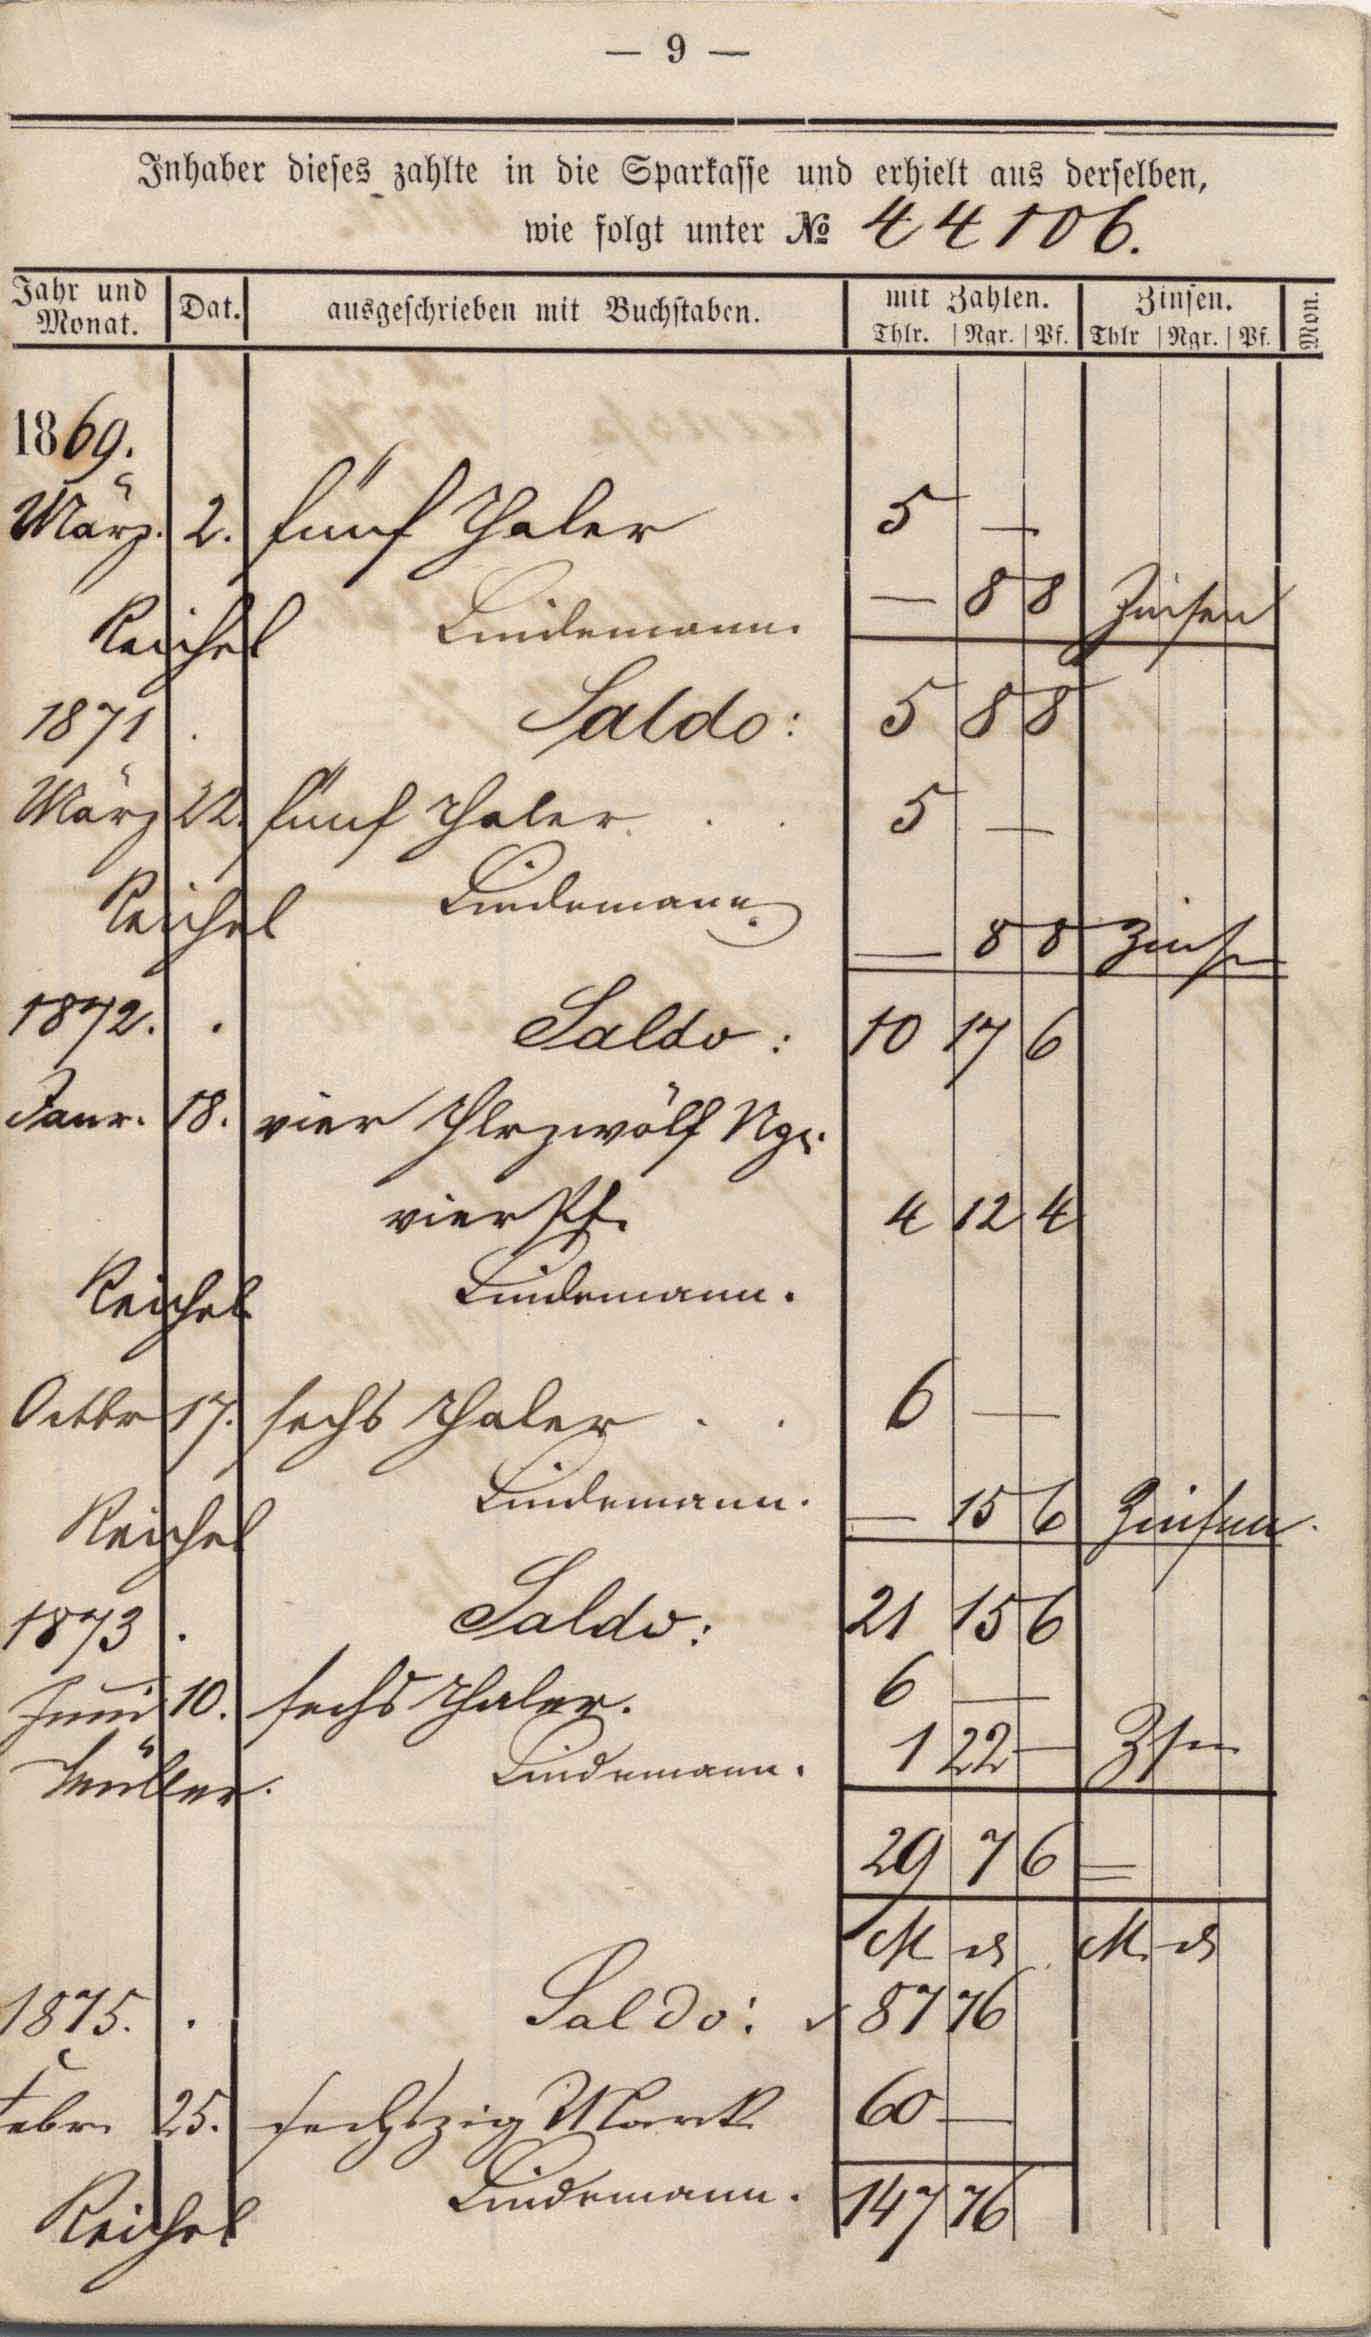 — 9 —
Inhaber dieses zahlte in die Sparkasse und erhielt aus derselben,
wie folgt unter № 44106.
Jahr und Monat. Dat. ausgeschrieben mit Buchstaben. mit Zahlen. Zinsen. Mon.
Thlr. Ngr. Pf. Thlr Ngr. Pf.
1869.
März. 2. fünf Thaler 5 —
— 8 8 Zinsen
Reichel Lindemann.
1871 . Saldo: 5 8 8
März 22. fünf Thaler . . 5 —
Reichel Lindemann.
— 8 8 Zinsen
1872. . Saldo: 10 17 6
Janr. 18. vier Thlr zwölf Ngr.
vier Pf. 4 12 4
Reichel Lindemann.
Octbr 17. sechs Thaler . . 6 —
Reichel Lindemann. — 15 6 Zinsen.
1873 . Saldo: 21 15 6
Juni 10. sechs Thaler. 6 —
Müller. Lindemann. 1 22 — Zsen
29 7 6 =
M ₰ M. ₰
1875. . Saldo: 87 76
Febr. 25. sechszig Mark 60 —
Reichel Lindemann. 147 76